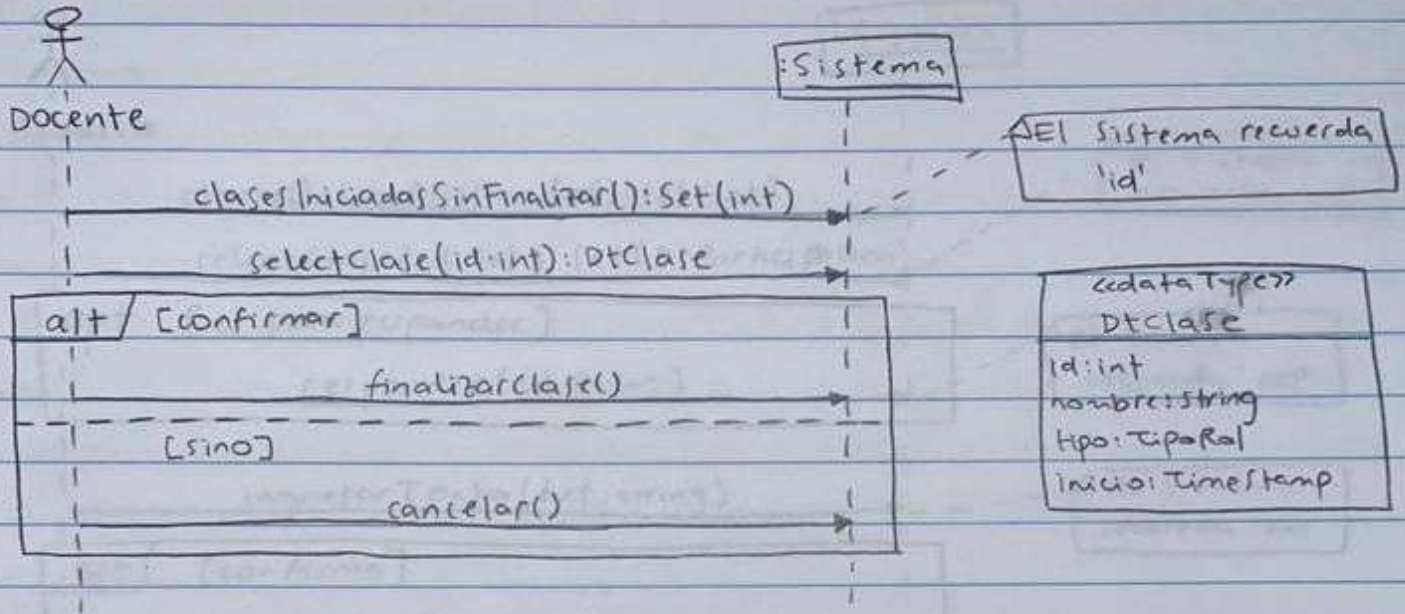 :Sistema
Docente
El sistema recuerda
'id'
clasesIniciadasSinFinalizar():Set(int)
selectClase(id:int):DtClase
alt [confirmar]
finalizarClase()
[sino]
cancelar()
<<dataType>>
DtClase
id:int
nombre:String
tipo:TipoRol
inicio:Timestamp